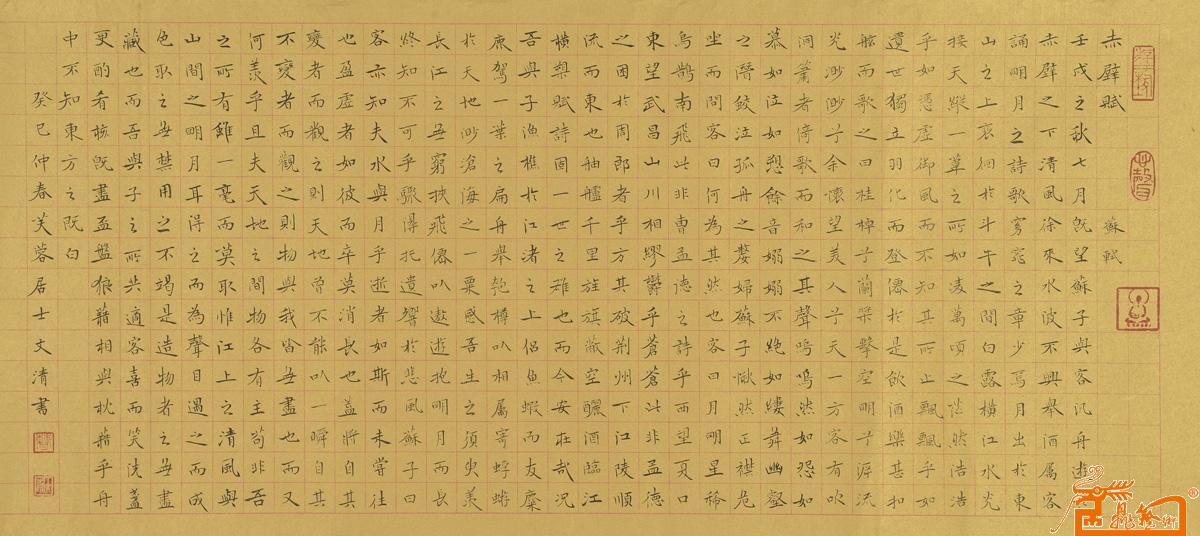 赤壁賦 蘇軾
壬戌之秋七月既望蘇子與客汎舟遊於
赤壁之下清風徐來水波不興舉酒屬客
誦明月之詩歌窈窕之章少焉月出於東
山之上裵徊於斗牛之間白露橫江水光
接天縱一葦之所如凌萬頃之茫然浩浩
乎如憑虛御風而不知其所止飄飄乎如
遺世獨立羽化而登僊於是飲酒樂甚扣
舷而歌之曰桂棹兮蘭槳擊空明兮泝流
光渺渺兮余懷望美人兮天一方客有吹
洞簫者倚歌而和之其聲嗚嗚然如怨如
慕如泣如愬餘音嫋嫋不絕如縷舞幽壑
之潛鮫泣孤舟之嫠婦蘇子愀然正襟危
坐而問客曰何為其然也客曰月明星稀
烏鵲南飛此非曹孟德之詩乎西望夏口
東望武昌山川相繆鬱乎蒼蒼此非孟德
之困於周郎者乎方其破荊州下江陵順
流而東也舳艫千里旌旗蔽空釃酒臨江
橫槊賦詩固一世之雄也而今安在哉況
吾與子漁樵於江渚之上侶魚蝦而友麋
鹿駕一葉之扁舟舉匏樽以相屬寄蜉蝣
於天地渺滄海之一粟感吾生之須臾羨
長江之無窮挾飛僊以遨遊抱明月而長
終知不可乎驟得托遺響於悲風蘇子曰
客亦知夫水與月乎逝者如斯而未嘗往
也盈虛者如彼而卒莫消長也蓋將自其
變者而觀之則天地曾不能以一瞬自其
不變者而觀之則物與我皆無盡也而又
何羨乎且夫天地之間物各有主苟非吾
之所有雖一毫而莫取惟江上之清風與
山間之明月耳得之而為聲目遇之而成
色取之無禁用之不竭是造物者之無盡
藏也而吾與子之所共適客喜而笑洗盞
更酌肴核既盡盃盤狼藉相與枕藉乎舟
中不知東方之既白
癸巳仲春芙蓉居士文清書